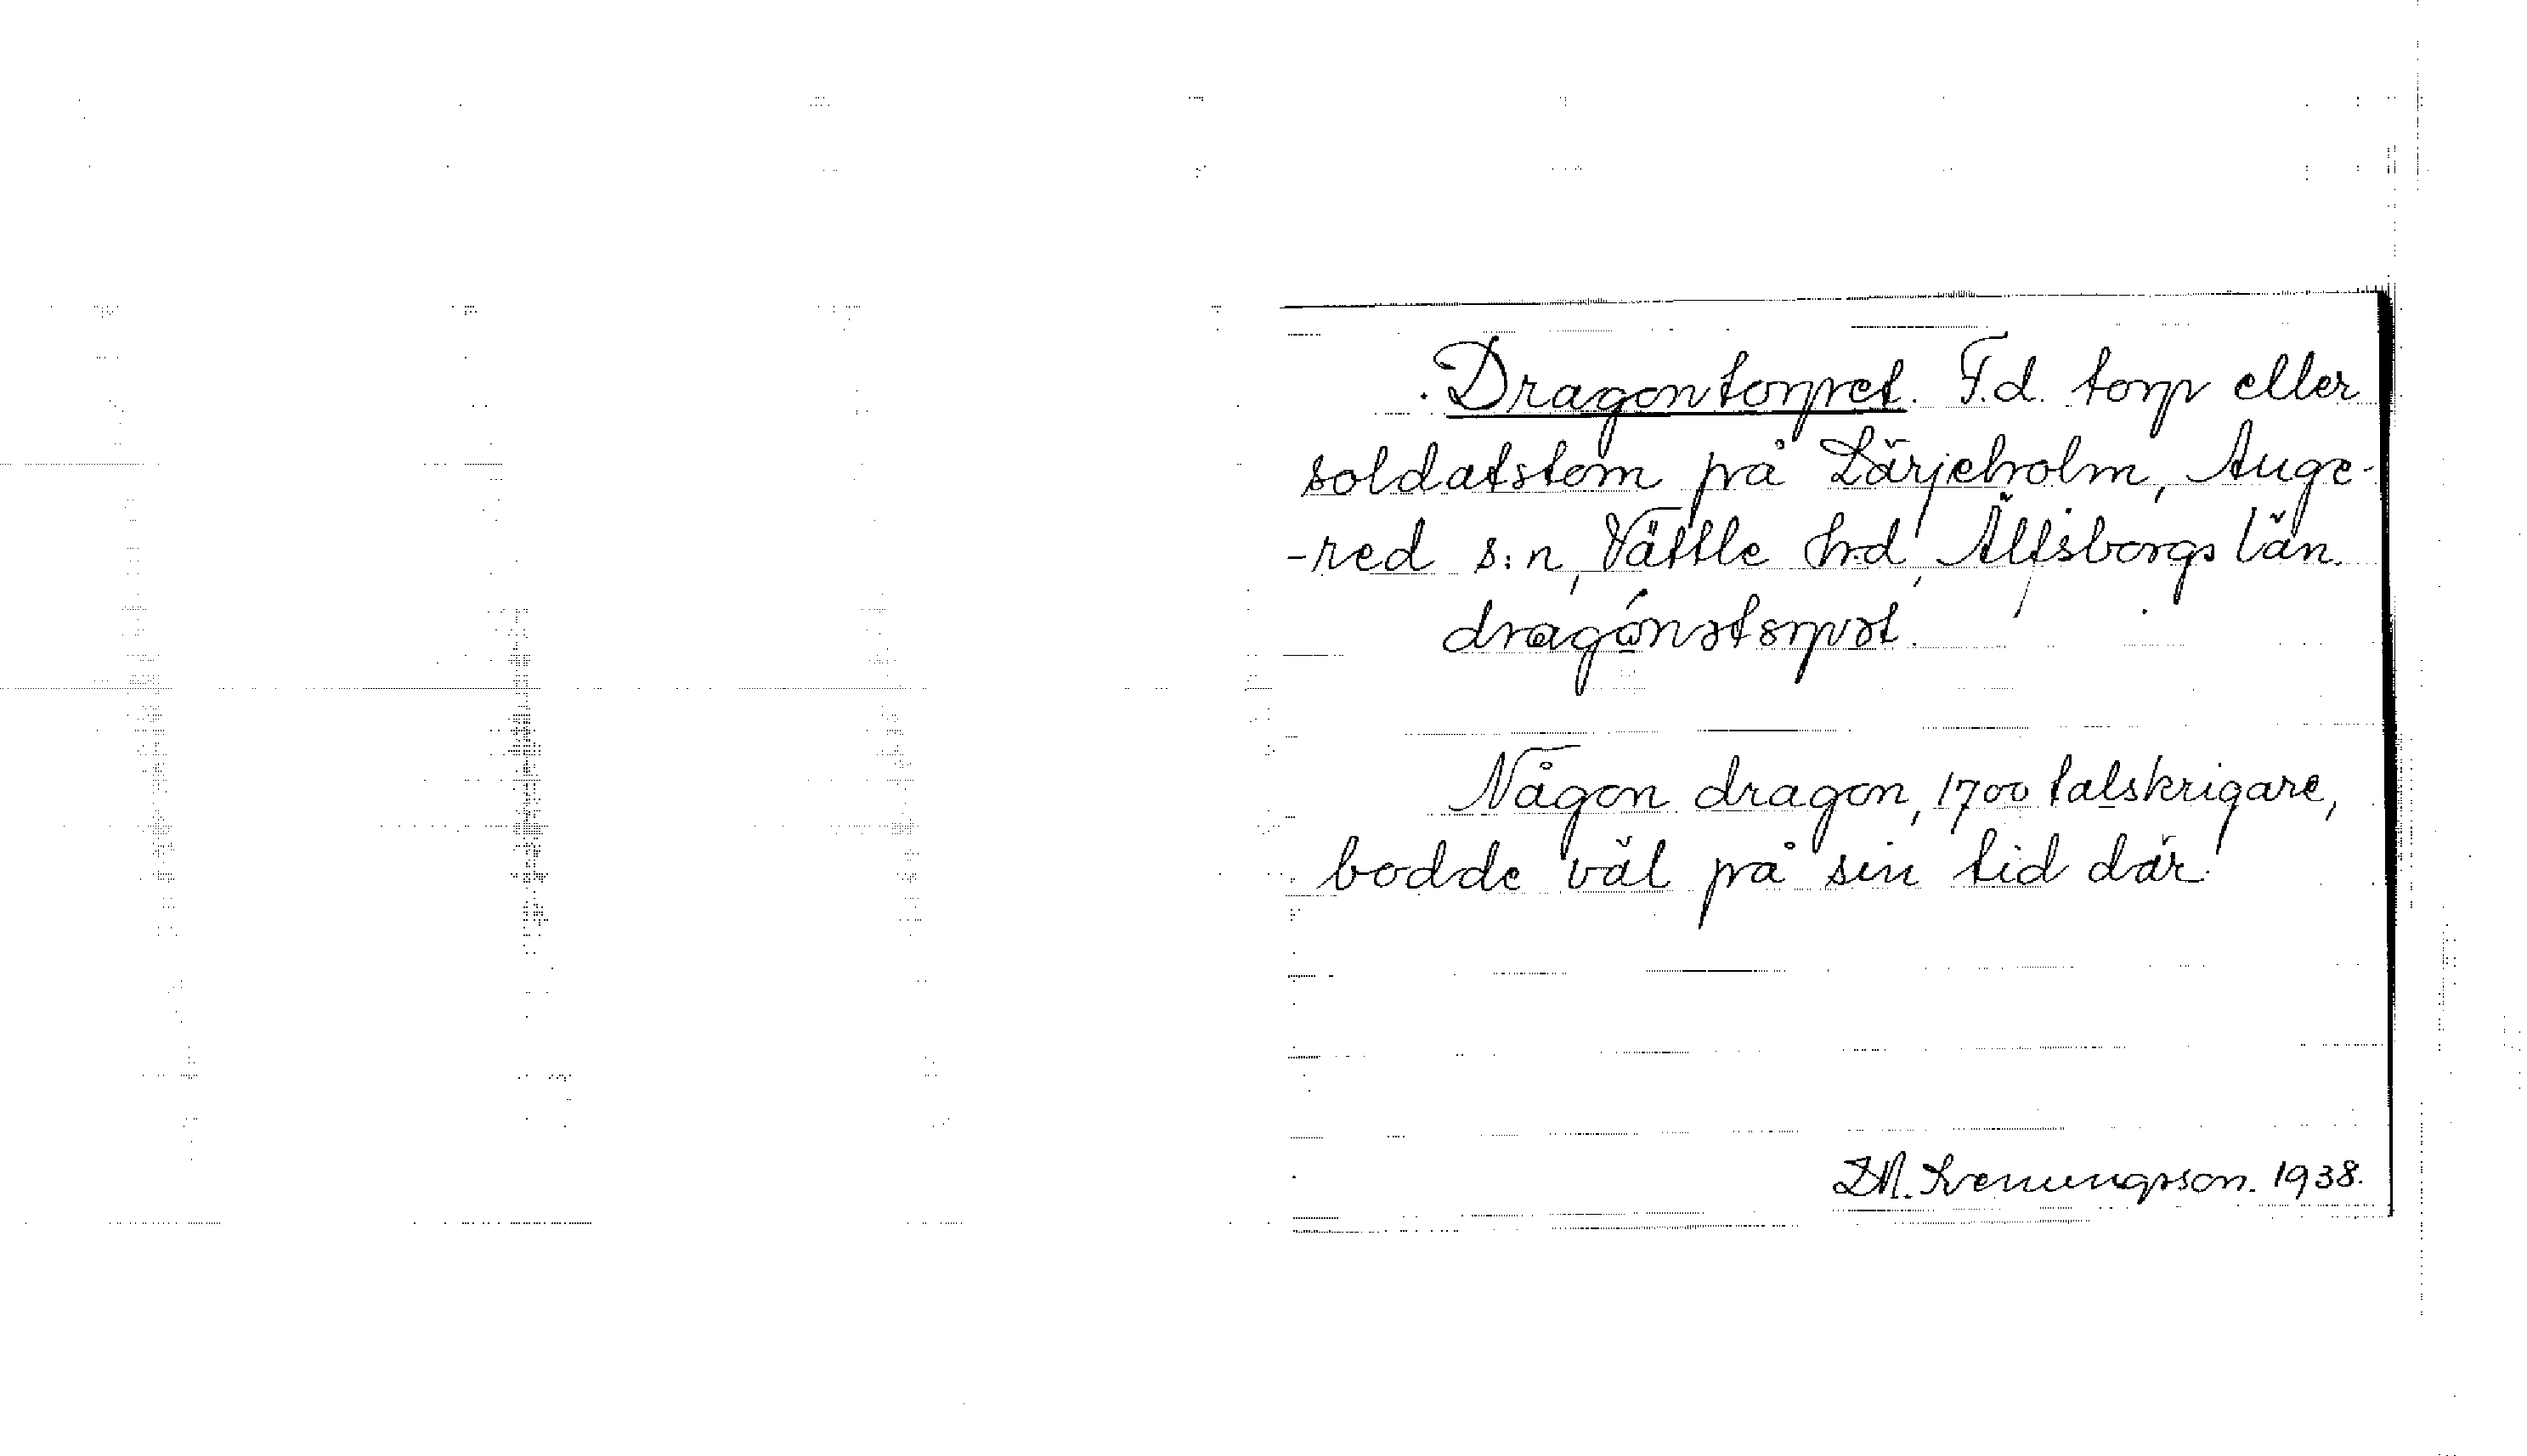 Dragontorpet. F.d. torp eller
soldatstom på Lärjeholm, Ange-
-red s:n, Vättle hd, Älfsborgs län.
dragónətorpət.
Någon dragon, 1700 talskrigare,
bodde väl på sin tid där.
D.A. Svenungsson. 1938.